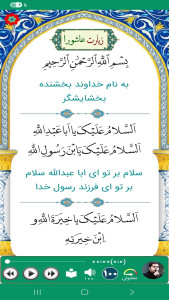 زیارت عاشورا
بِسْمِ اللَّهِ الرَّحْمٰنِ الرَّحيمِ
به نام خداوند بخشنده
بخشایشگر
اَلسَّلامُ عَلَيْكَ يا اَبا عَبْدِاللَّهِ
اَلسَّلامُ عَلَيْكَ يَا بْنَ رَسُولِ اللَّهِ
سلام بر تو ای ابا عبدالله سلام
بر تو ای فرزند رسول خدا
اَلسَّلامُ عَلَيْكَ يا خِيَرَةَ اللَّهِ و
ابْنَ خِيَرَتِهِ